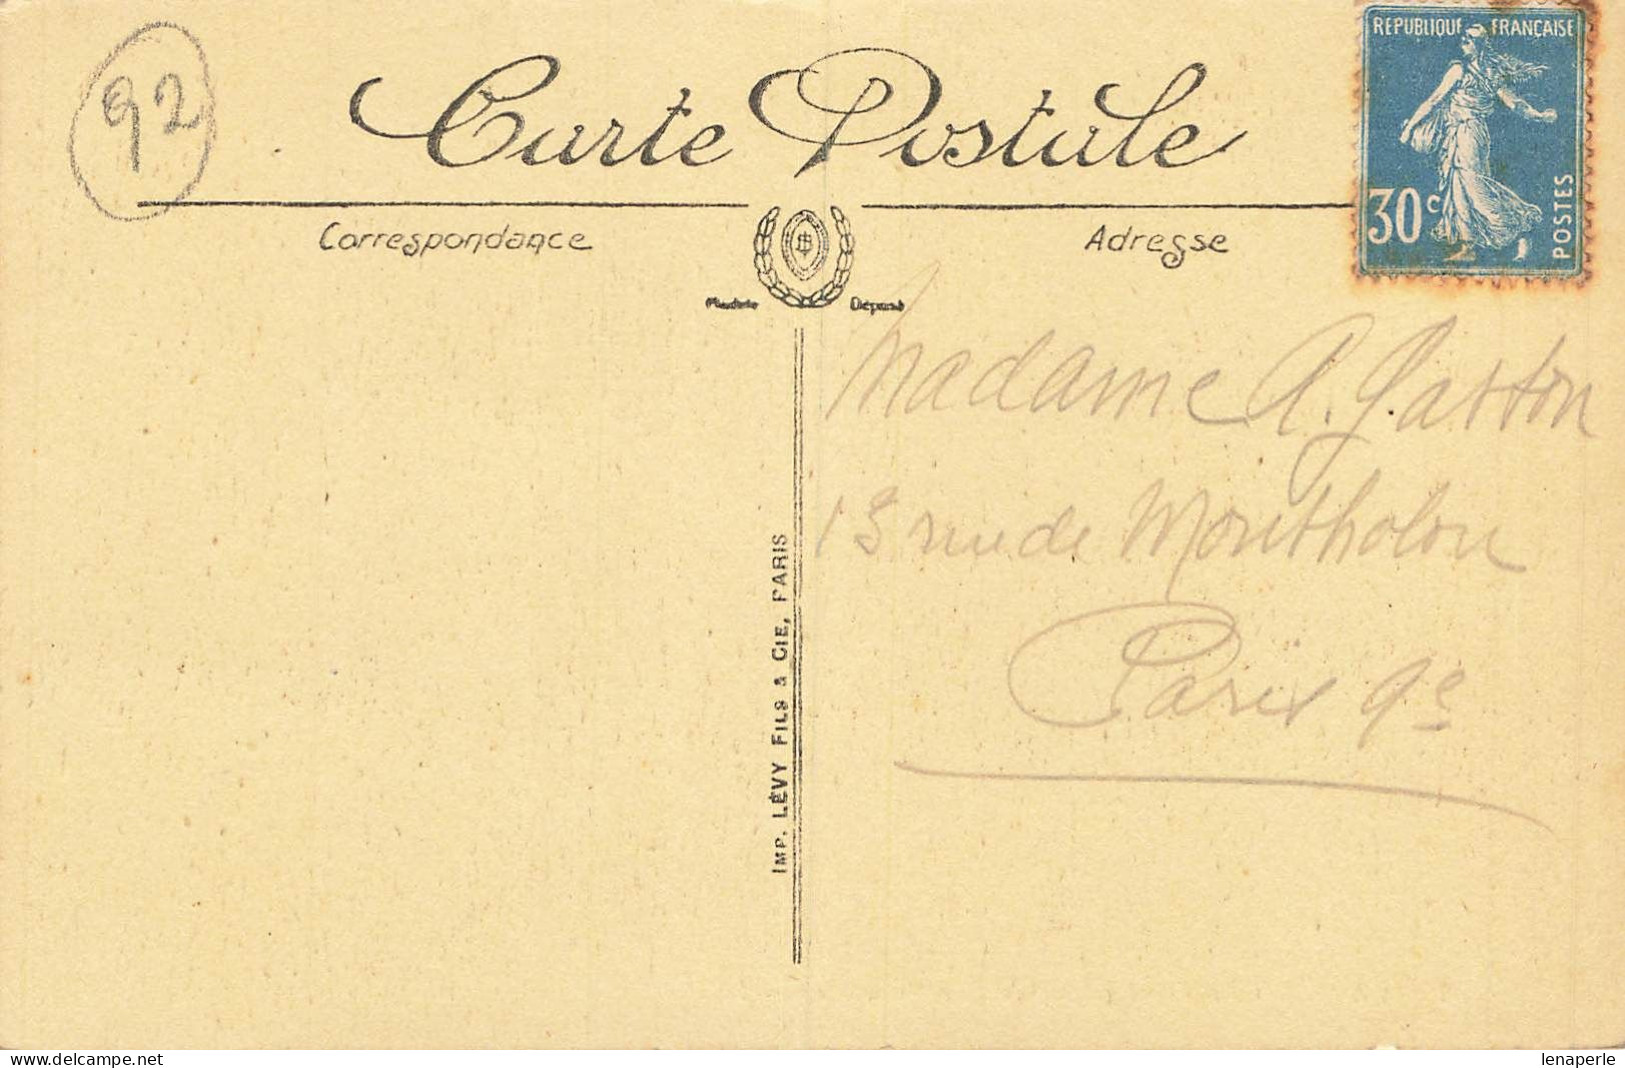 92
Carte Postale
RÉPUBLIQUE FRANÇAISE
30c
POSTES
Correspondance
Adresse
Modèle Déposé
Madame A. Gaston
13 rue de Montholon
Paris 9e
IMP. LÉVY FILS & CIE, PARIS
www.delcampe.net
lenaperle